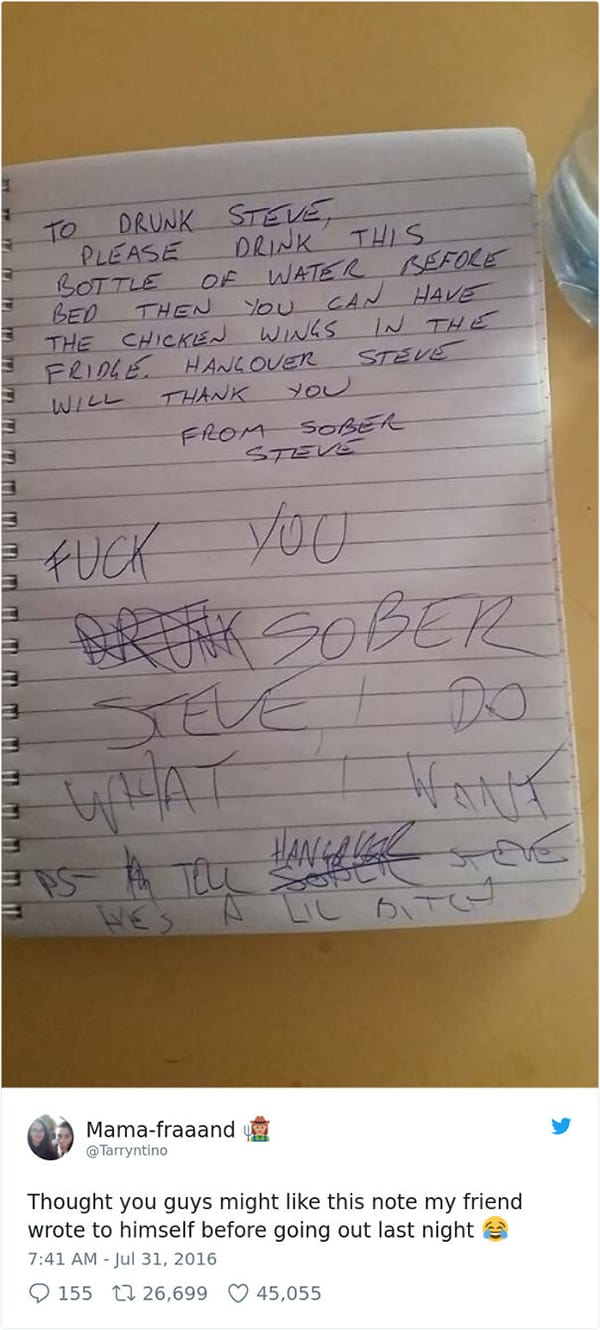 TO DRUNK STEVE,
PLEASE DRINK THIS
BOTTLE OF WATER BEFORE
BED THEN YOU CAN HAVE
THE CHICKEN WINGS IN THE
FRIDGE. HANGOVER STEVE
WILL THANK YOU
FROM SOBER
STEVE
FUCK YOU
DRUNK SOBER
STEVE, I DO
WHAT I WANT
PS- TELL HANGOVER SOBER STEVE
HES A LIL BITCH
Mama-fraaand
@Tarryntino
Thought you guys might like this note my friend
wrote to himself before going out last night 😂
7:41 AM - Jul 31, 2016
155 26,699 45,055